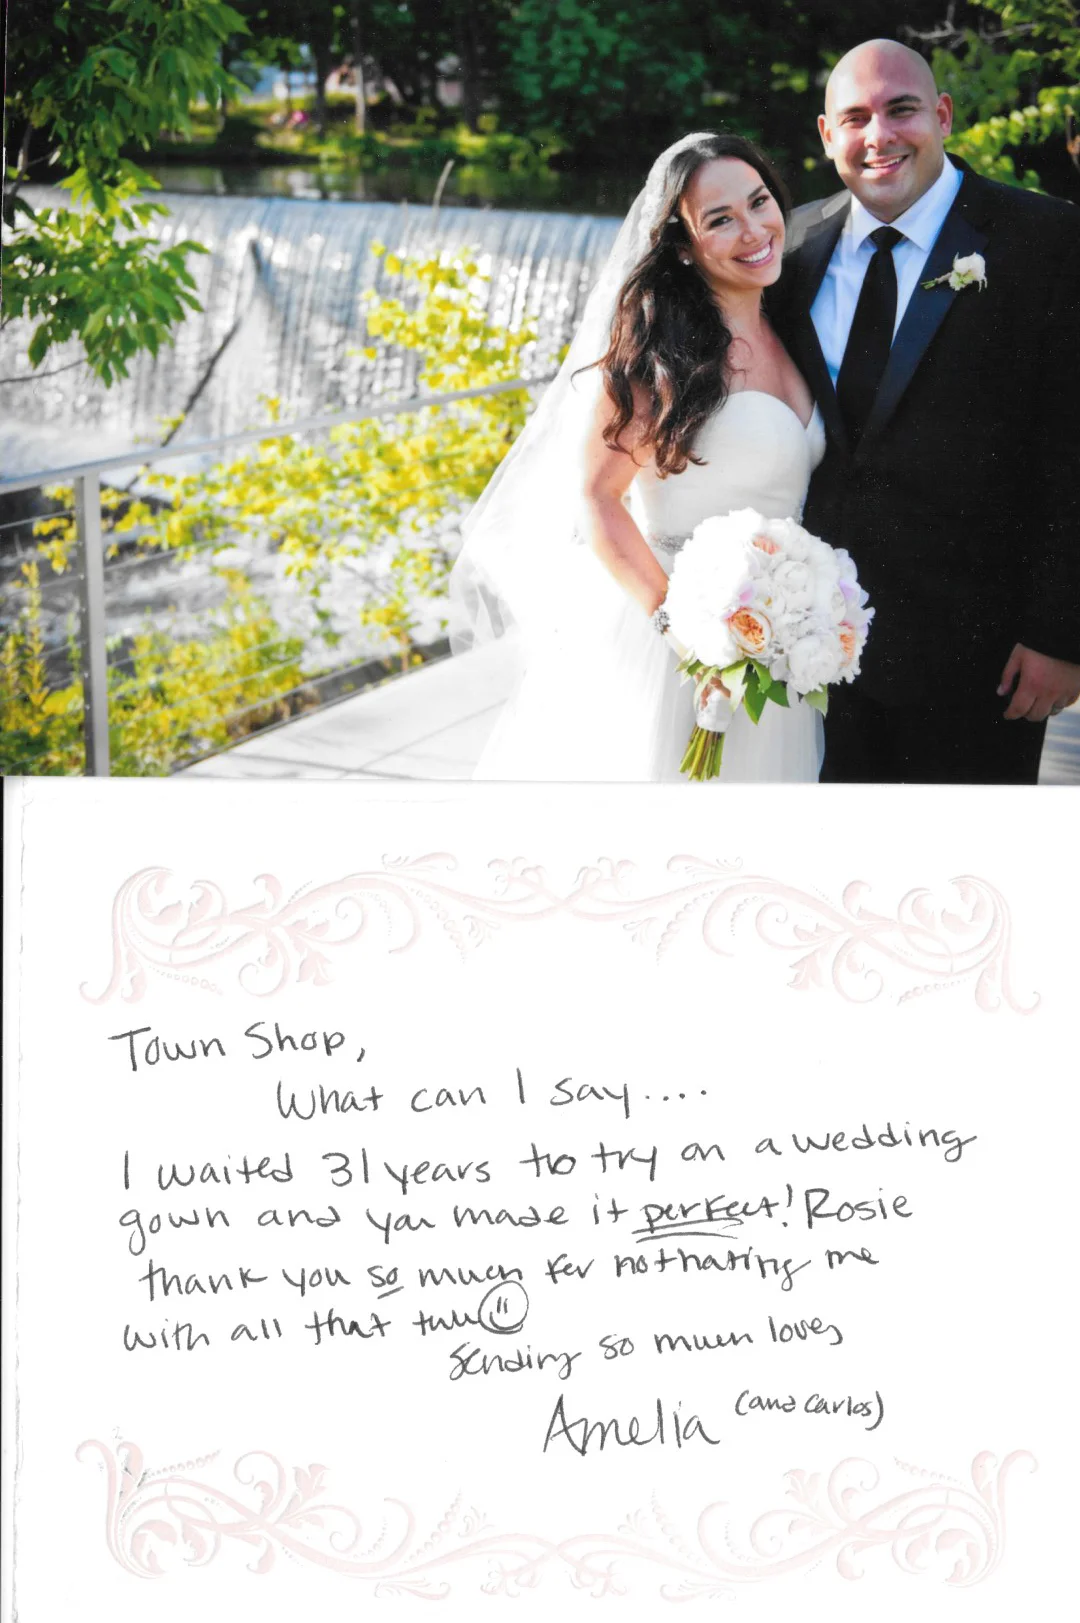 Town Shop,
What can I say....
I waited 31 years to try on a wedding
gown and you made it perfect! Rosie
thank you so much for not hating me
with all that tulle
Sending so much love,
Amelia (and Carlos)